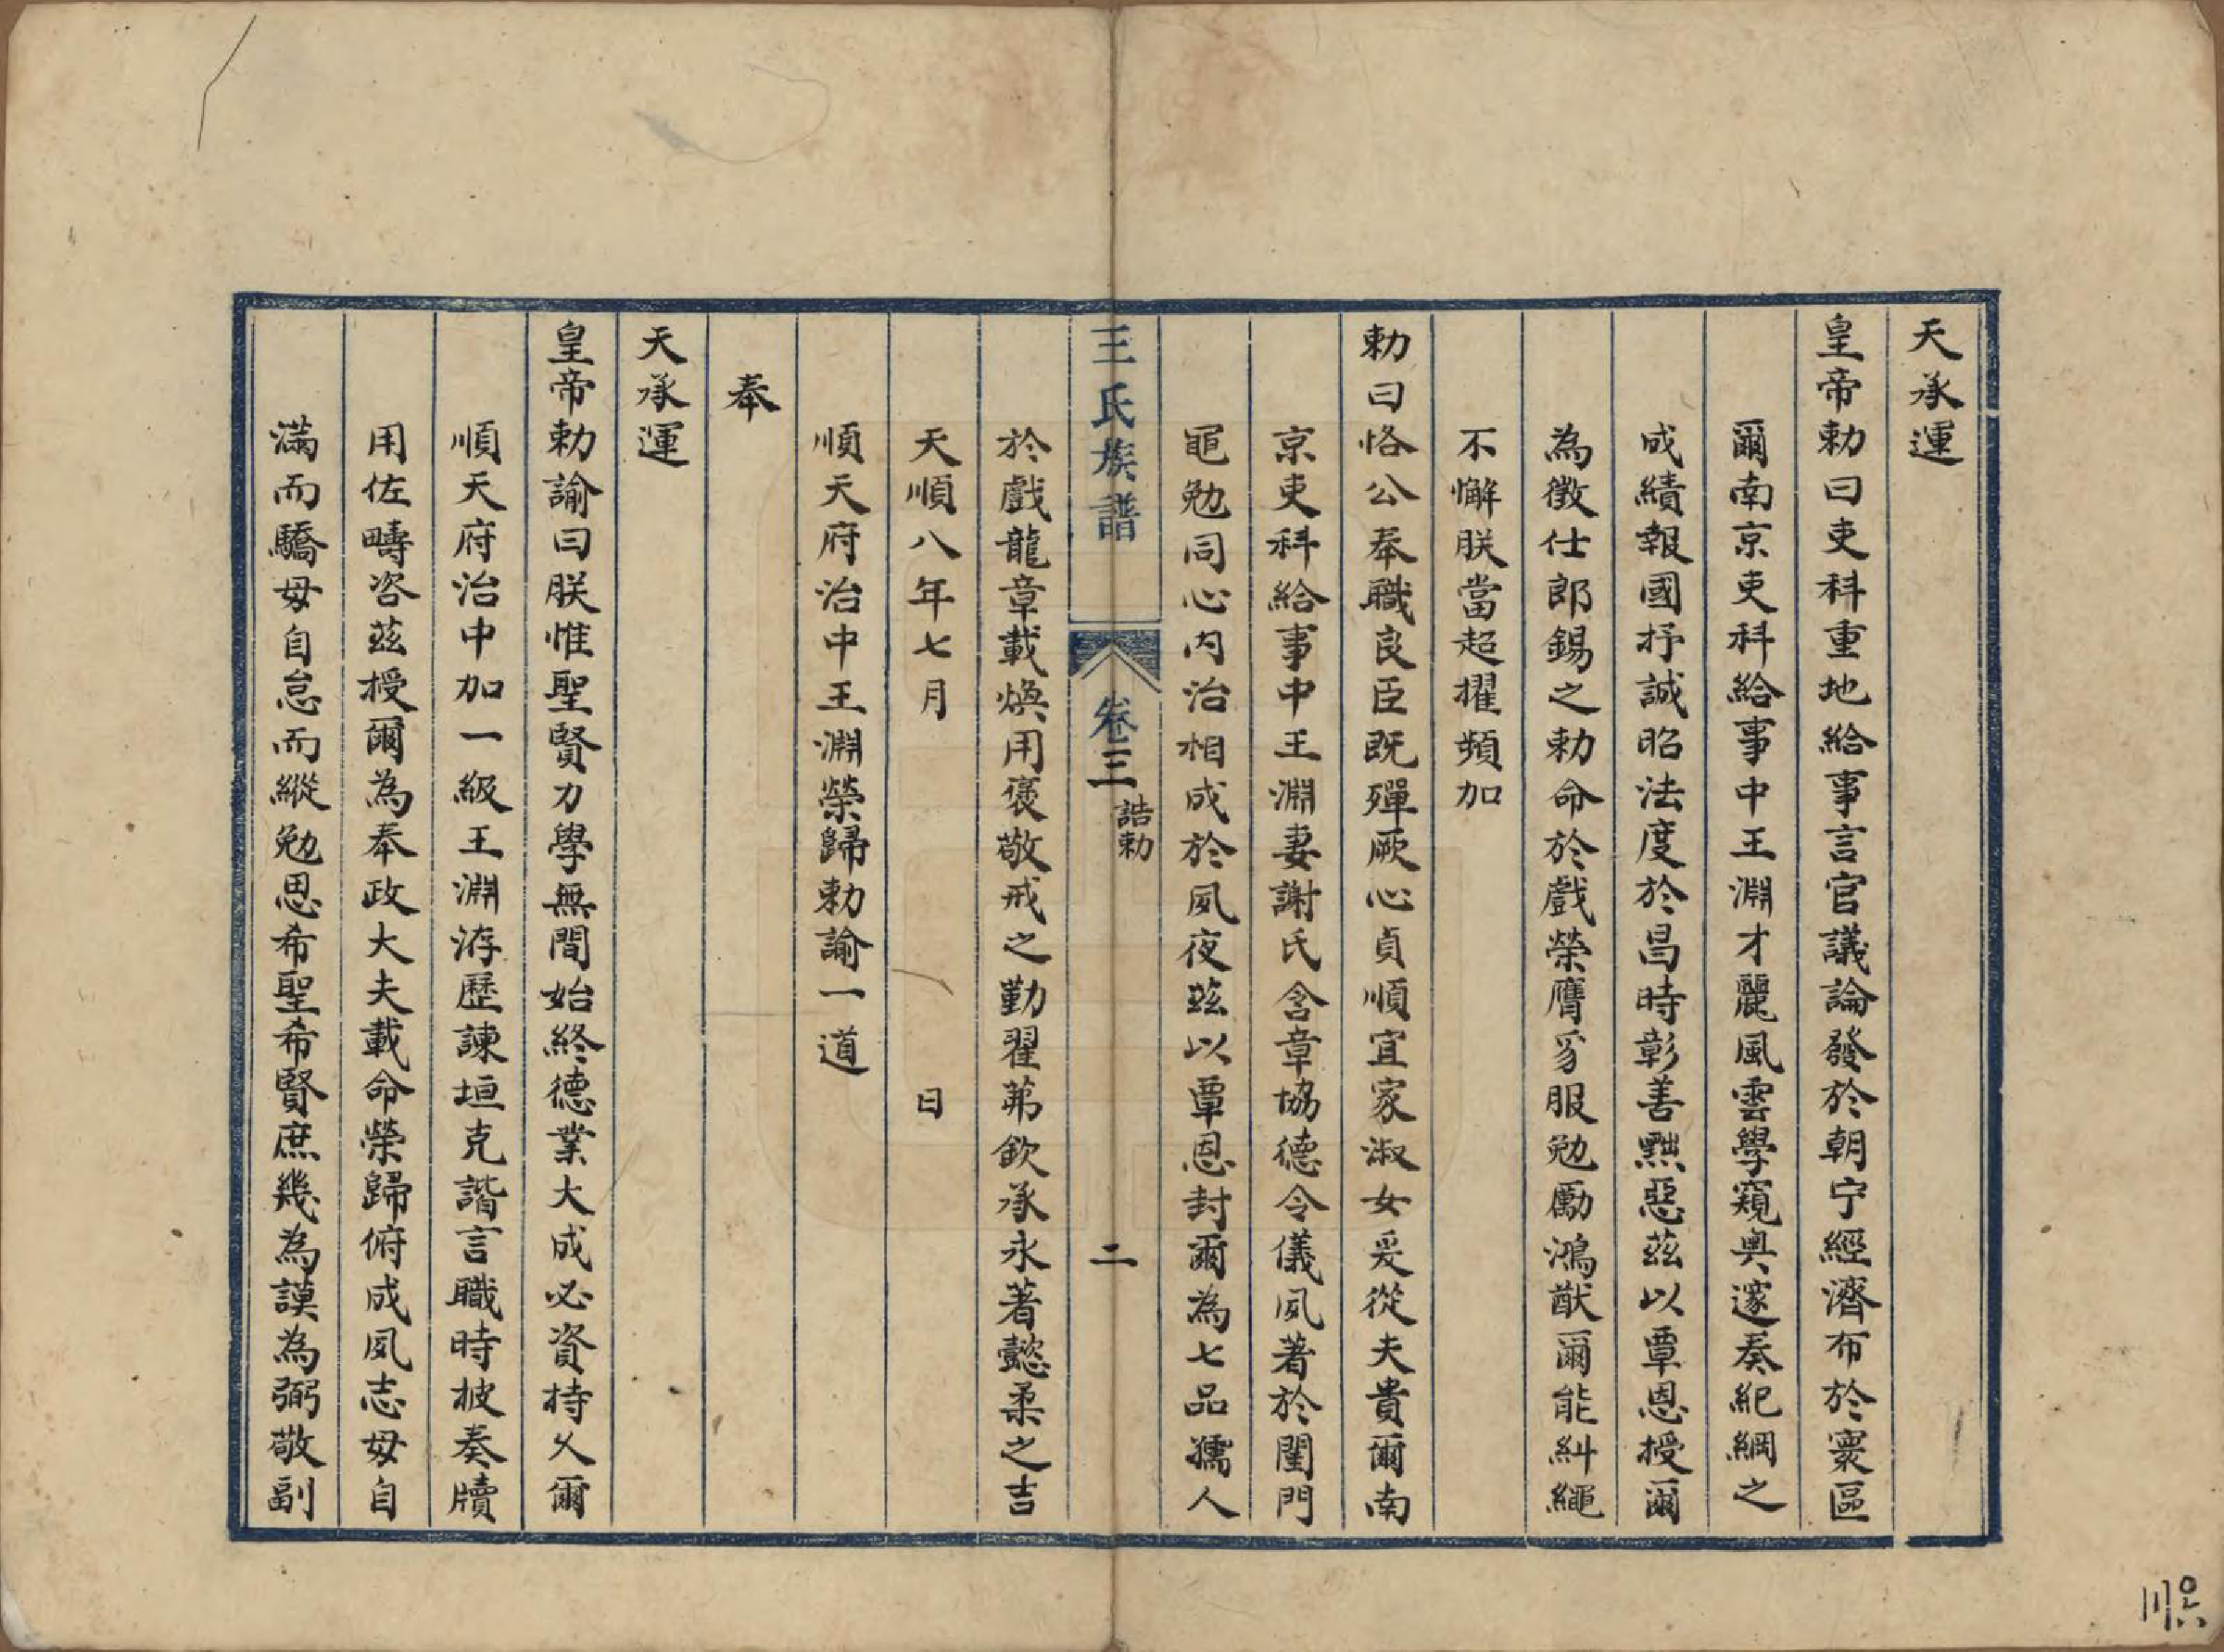 天承運
皇帝勅曰吏科重地給事言官議論發於朝宁經濟布於寰區
爾南京吏科給事中王淵才麗風雲學窺奧邃奏紀綱之
成績報國抒誠昭法度於昌時彰善黜惡茲以覃恩授爾
為徵仕郎錫之勅命於戲榮膺豸服勉勵鴻猷爾能糾繩
不懈朕當超擢頻加
勅曰恪公奉職良臣既殫厥心貞順宜家淑女爰從夫貴爾南
京吏科給事中王淵妻謝氏含章協德令儀夙著於閨門
黽勉同心內治相成於夙夜茲以覃恩封爾為七品孺人
王氏族譜 卷三 誥勅 二
於戲龍章載煥用褒敬戒之勤翟茀欽承永著懿柔之吉
天順八年七月 日
順天府治中王淵榮歸勅諭一道
奉
天承運
皇帝勅諭曰朕惟聖賢力學無間始終德業大成必資持久爾
順天府治中加一級王淵洊歷諫垣克諧言職時披奏牘
用佐疇咨茲授爾為奉政大夫載命榮歸俯成夙志毋自
滿而驕毋自怠而縱勉思希聖希賢庶幾為謨為弼敬副